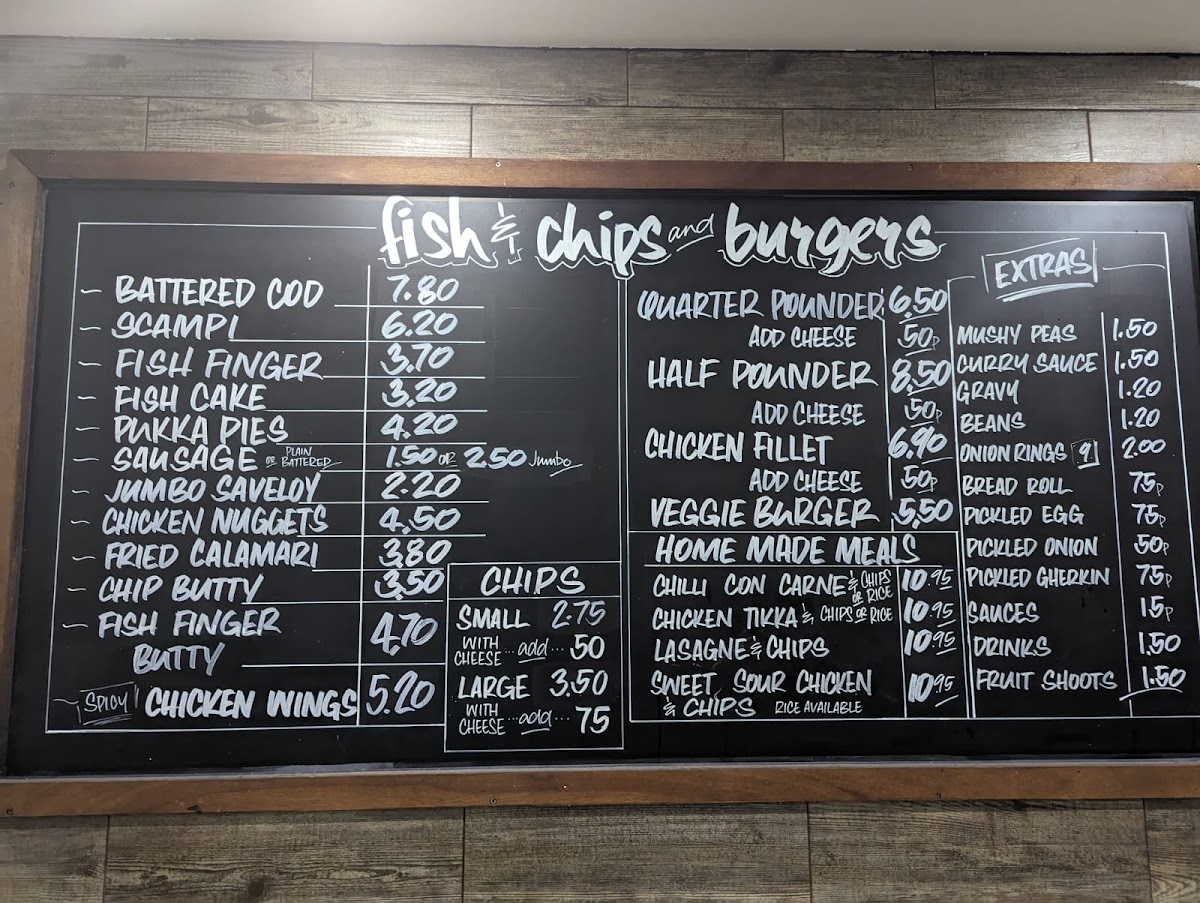 fish & chips and burgers
BATTERED COD 7.80
SCAMPI 6.20
FISH FINGER 3.70
FISH CAKE 3.20
PUKKA PIES 4.20
SAUSAGE PLAIN OR BATTERED 1.50 OR 2.50 Jumbo
JUMBO SAVELOY 2.20
CHICKEN NUGGETS 4.50
FRIED CALAMARI 3.80
CHIP BUTTY 3.50
FISH FINGER
BUTTY 4.70
SPICY CHICKEN WINGS 5.20
CHIPS
SMALL 2.75
WITH
CHEESE ... add ... 50
LARGE 3.50
WITH
CHEESE ... add ... 75
QUARTER POUNDER 6.50
ADD CHEESE 50p
HALF POUNDER 8.50
ADD CHEESE 50p
CHICKEN FILLET 6.90
ADD CHEESE 50p
VEGGIE BURGER 5.50
HOME MADE MEALS
CHILLI CON CARNE & CHIPS OR RICE 10.95
CHICKEN TIKKA & CHIPS OR RICE 10.95
LASAGNE & CHIPS 10.95
SWEET SOUR CHICKEN 10.95
& CHIPS RICE AVAILABLE
EXTRAS
MUSHY PEAS 1.50
CURRY SAUCE 1.50
GRAVY 1.20
BEANS 1.20
ONION RINGS 9 2.00
BREAD ROLL 75p
PICKLED EGG 75p
PICKLED ONION 50p
PICKLED GHERKIN 75p
SAUCES 15p
DRINKS 1.50
FRUIT SHOOTS 1.50